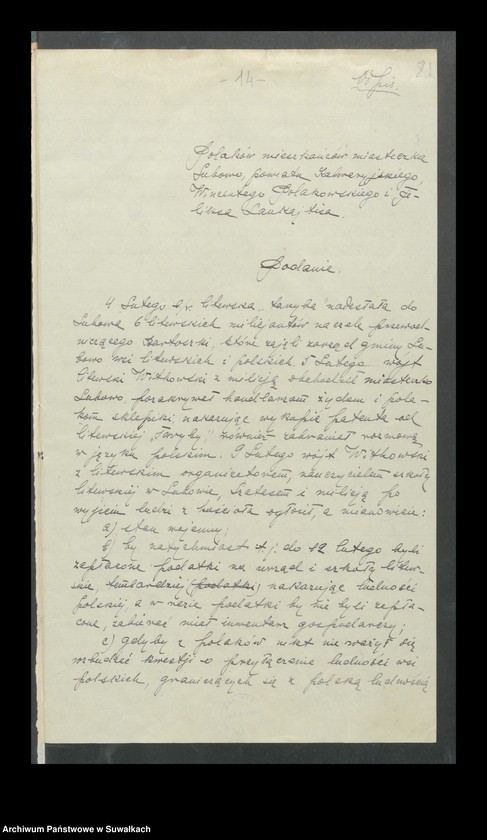 - 14 -
Odpis.
82
Polaków mieszkańców miasteczka
Lubowo, powiatu Kalwaryjskiego,
Wincentego Polakowskiego i Fe-
liksa Laukajtisa.
Podanie.
4 Lutego b/r. litewska "Taryba" nadesłała do
Lubowa 6 litewskich milicjantów na czele przewod-
niczącego, którzy zajęli zarząd gminy Lu-
bowo wsi litewskich i polskich. 5 Lutego wójt
litewski Witkowski z milicją obchodził miasteczko
Lubowo pozakrywał handlarzom żydom i pola-
kom sklepiki, nakazując wykupić patenta od
litewskiej "Taryby", również zabraniał rozmową
w języku polskim. 9 Lutego wójt Witkowski
z litewskim organizatorem, nauczycielem szkoły
litewskiej w Lubowie, i milicją po
wyjściu ludzi z kościoła ogłosił, a mianowicie:
a) stan wojenny;
b) by natychmiast t.j. do 12 lutego byli
zapłacone podatki na urząd i szkoły litew-
skie, (podatki) nakazując ludności
polskiej, a w razie podatki by nie byli zapła-
cone, zabierać miał inwentarz gospodarczy;
c) gdyby z polaków nikt nie ważył się
wzbudzać kwestji o przyłączenie ludności wsi
polskich, graniczących się z polską ludnością
Archiwum Państwowe w Suwałkach